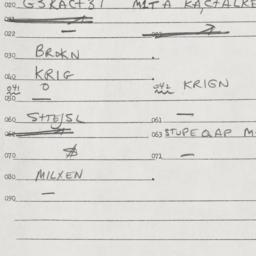 020 GSKACT31 MITA KACTALKE
022
030 BROKN
040 KRIG
041 O 042 KRIGN
050
060 STTEJSL 061
062 063 STUPEQAP M
070 $ 071
080 MILXEN
090